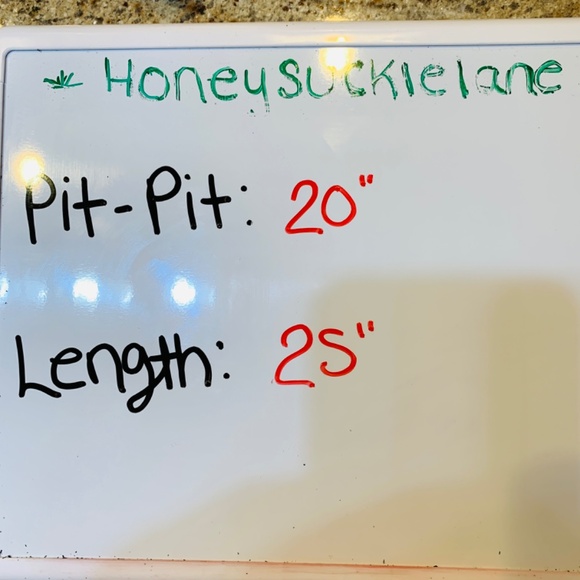 * Honeysuckielane
Pit-Pit: 20"
Length: 25"